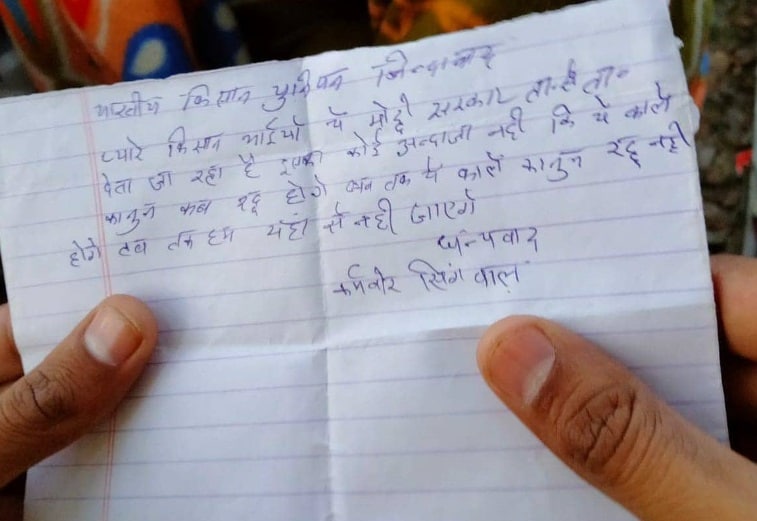 भारतीय किसान युनियन जिन्दाबाद
प्यारे किसान भाईयों ये मोदी सरकार तारीख ता-
देता जा रहा है इसका कोई अन्दाजा नही कि ये काले
कानुन कब रद्द होगे जब तक ये काले कानुन रद्द नही
होगे तब तक हम यहां से नही जाएगे
धन्यवाद
कर्मवीर सिंगवाल